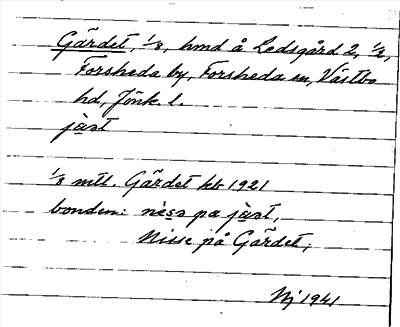 Gärdet, 1/8, hmd å Ledsgård 2, 1/2,
Forsheda by, Forsheda sn, Västbo
hd, Jönk l.
jàst
1/8 mtl. Gärdet kb 1921
bonden: nìss pα jàst,
Nisse på Gärdet,
Nj 1941